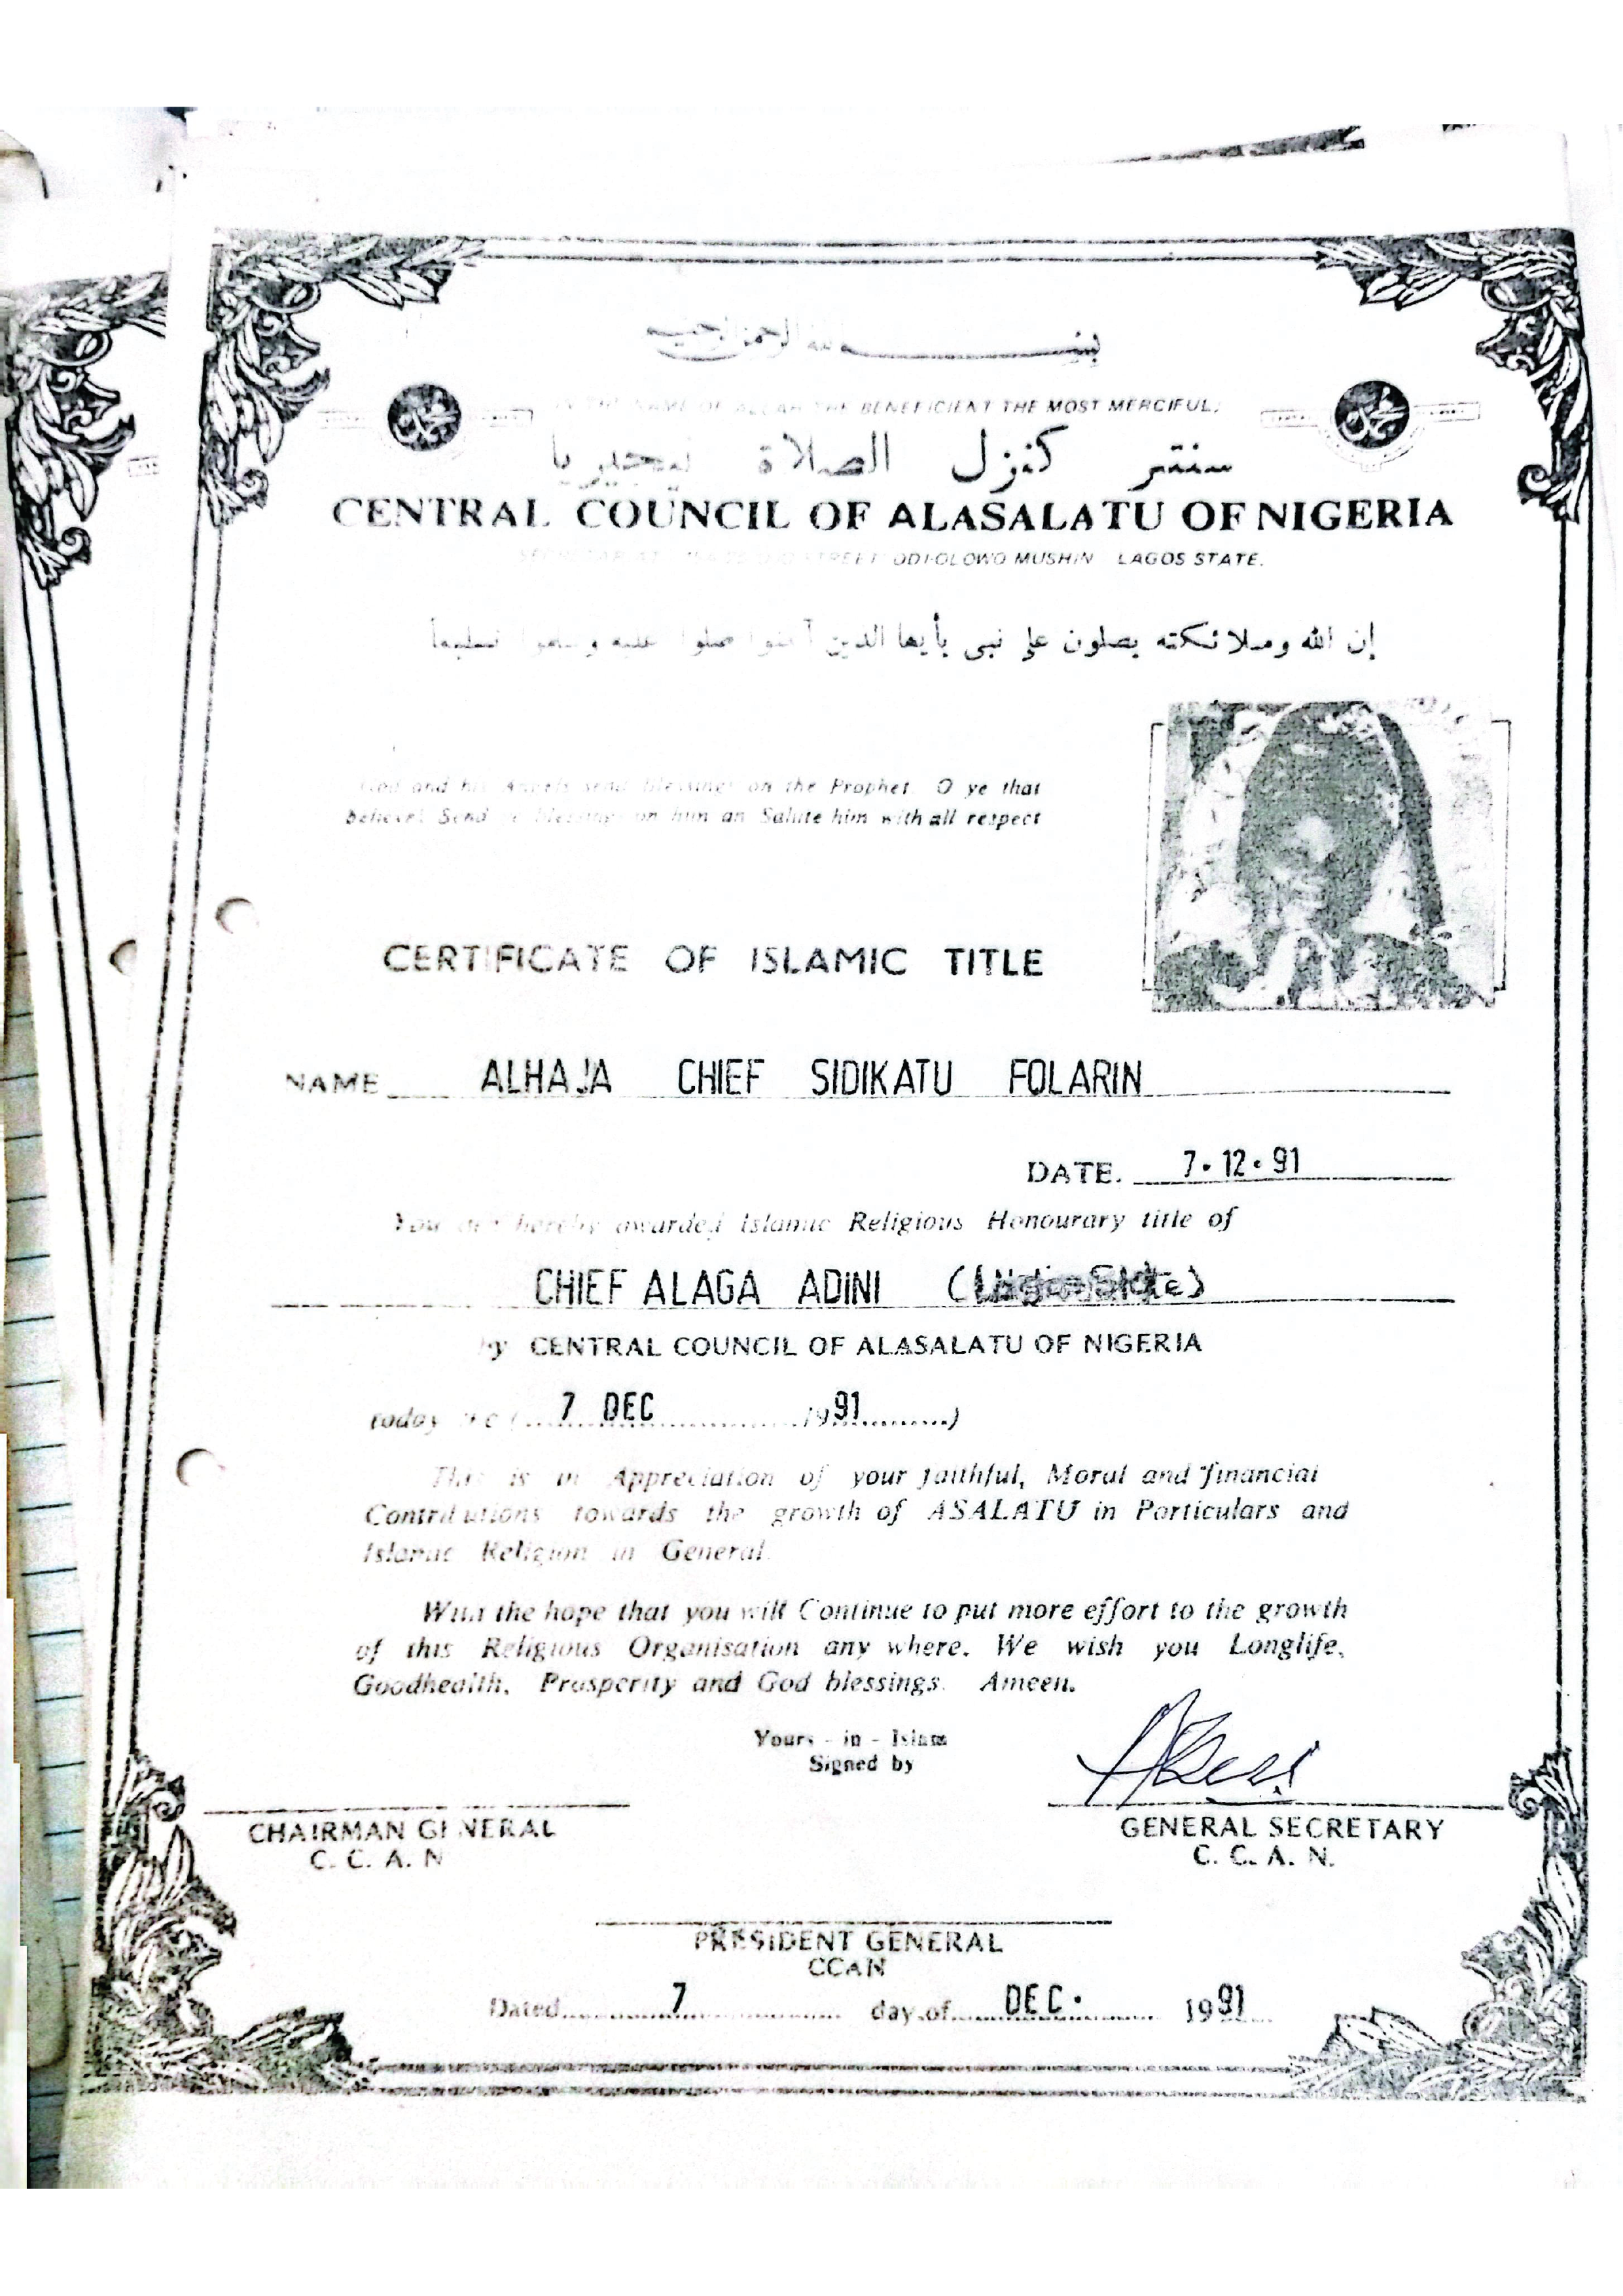 بسم الله الرحمن الرحيم
IN THE NAME OF ALLAH THE BENEFICIENT THE MOST MERCIFUL,
سنتر كنزل الصلاة نيجيريا
CENTRAL COUNCIL OF ALASALATU OF NIGERIA
STREET ODI-OLOWO MUSHIN LAGOS STATE.
إن الله وملائكته يصلون على نبى يأيها الذين آمنوا صلوا عليه وسلموا تسليما
God and his Angels send blessings on the Prophet. O ye that
believe! Send blessings on him an Salute him with all respect
CERTIFICATE OF ISLAMIC TITLE
NAME ALHAJA CHIEF SIDIKATU FOLARIN
DATE. 7.12.91
You are hereby awarded Islamic Religious Honourary title of
CHIEF ALAGA ADINI
by CENTRAL COUNCIL OF ALASALATU OF NIGERIA
today (... 7 DEC ... 1991 ...)
This is in Appreciation of your faithful, Moral and financial
Contributions towards the growth of ASALATU in Particulars and
Islamic Religion in General.
With the hope that you will Continue to put more effort to the growth
of this Religious Organisation any where. We wish you Longlife,
Goodhealth, Prosperity and God blessings. Ameen.
Yours - in - Islam
Signed by
CHAIRMAN GENERAL
C. C. A. N
GENERAL SECRETARY
C. C. A. N.
PRESIDENT GENERAL
CCAN
Dated 7 day of DEC. 1991